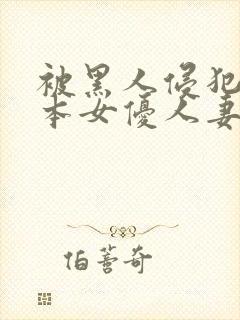 被黑人侵犯
本女優人妻
伯善奇